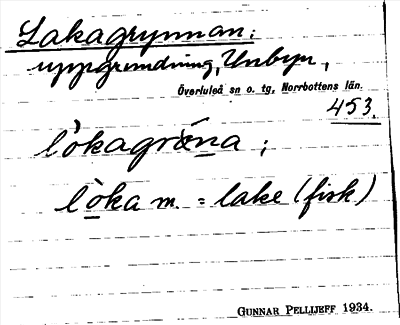 Lakagrynnan;
uppgrundning, Unbyn,
Överluleå sn o. tg, Norrbottens län.
453.
lòkagrö́na ;
lòka m. = lake (fisk)
GUNNAR PELLIJEFF 1934.